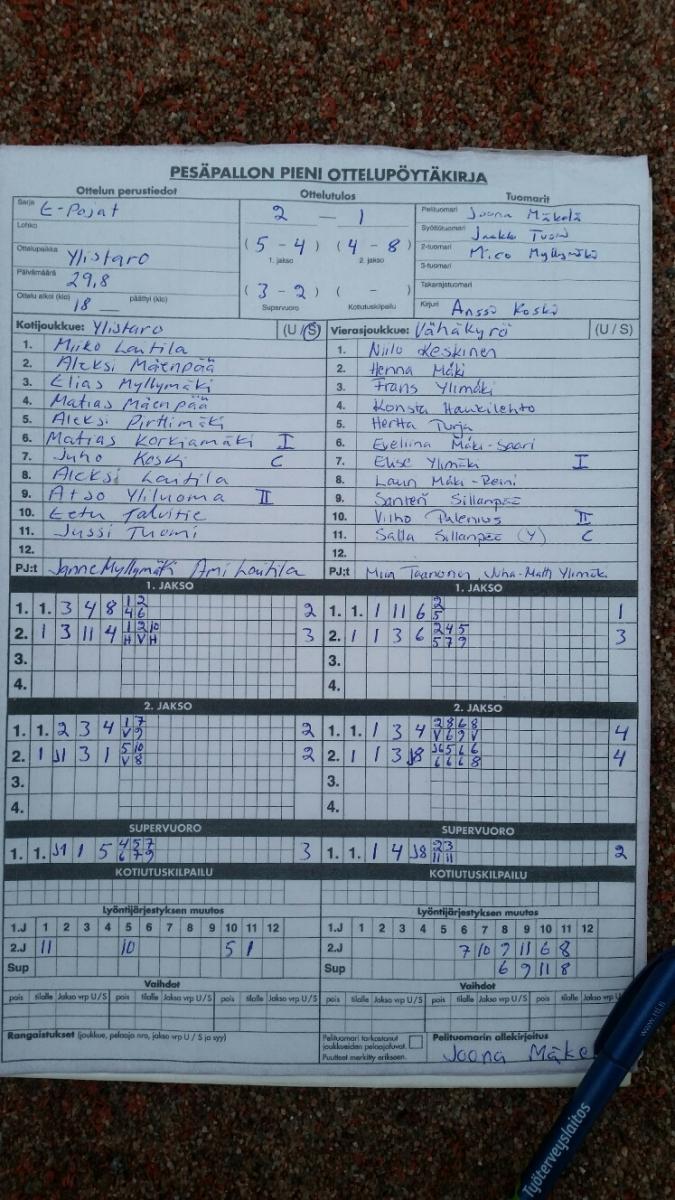 PESÄPALLON PIENI OTTELUPÖYTÄKIRJA
Ottelun perustiedot Ottelutulos Tuomarit
Sarja E-Pojat
Lohko
Ottelupaikka Ylistaro
Päivämäärä 29,8
Ottelu alkoi (klo) 18 päättyi (klo)
2 — 1
(5 - 4) (4 - 8)
1. jakso 2. jakso
(3 - 2) ( - )
Supervuoro Kotiutuskilpailu
Pelituomari Joona Mäkelä
Syöttötuomari Jaakko Tuomi
2-tuomari Mico Myllymäki
3-tuomari
Takarajatuomari
Kirjuri Anssi Koski
Kotijoukkue: Ylistaro (U / S)
1. Miiko Laitila
2. Aleksi Mäenpää
3. Elias Myllymäki
4. Matias Mäenpää
5. Aleksi Pirttimäki
6. Matias Korkiamäki I
7. Juho Koski C
8. Aleksi Lautila
9. Atso Yliluoma II
10. Eetu Talvitie
11. Jussi Tuomi
12.
PJ:t Janne Myllymäki Ami Lautila
Vierasjoukkue: Vähäkyrö (U / S)
1. Niilo Keskinen
2. Henna Mäki
3. Frans Ylimäki
4. Konsta Haukilehto
5. Hertta Turja
6. Eveliina Mäki-Saari
7. Elise Ylimäki I
8. Lauri Mäki-Reini
9. Santeri Sillanpää
10. Vilho Palenius II
11. Salla Sillanpää (Y) C
12.
PJ:t Miia Taanonen, Juha-Matti Ylimäki
1. JAKSO 1. JAKSO
1. 1. 3 4 8 1 2 2
4 6
2. 1 3 11 4 1 2 10 3
H V H
3.
4.
1. 1. 1 11 6 2 1
5
2. 1 1 3 6 2 4 5 3
5 7 9
3.
4.
2. JAKSO 2. JAKSO
1. 1. 2 3 4 1 7 2
V 9
2. 1 J1 3 1 5 10 2
V 8
3.
4.
1. 1. 1 3 4 2 8 6 8 4
V 6 9 V
2. 1 1 3 J8 J6 5 6 6 4
6 6 6 8
3.
4.
SUPERVUORO SUPERVUORO
1. 1. J1 1 5 4 5 7 3
6 7 9
1. 1. 1 4 J8 2 3 2
11 11
KOTIUTUSKILPAILU KOTIUTUSKILPAILU
Lyöntijärjestyksen muutos Lyöntijärjestyksen muutos
1.J 1 2 3 4 5 6 7 8 9 10 11 12 1.J 1 2 3 4 5 6 7 8 9 10 11 12
2.J 11 10 5 1 2.J 7 10 9 11 6 8
Sup Sup 6 9 11 8
Vaihdot Vaihdot
pois tilalle Jakso vrp U / S pois tilalle Jakso vrp U / S pois tilalle Jakso vrp U / S pois tilalle Jakso vrp U / S pois tilalle Jakso vrp U / S pois tilalle Jakso vrp U
Rangaistukset (joukkue, pelaaja nro, jakso vrp U / S ja syy)
Pelituomari tarkastanut
joukkueiden pelaajaluvat.
Puutteet merkitty erikseen.
Pelituomarin allekirjoitus
Joona Mäke
Työterveyslaitos
www.ttl.fi